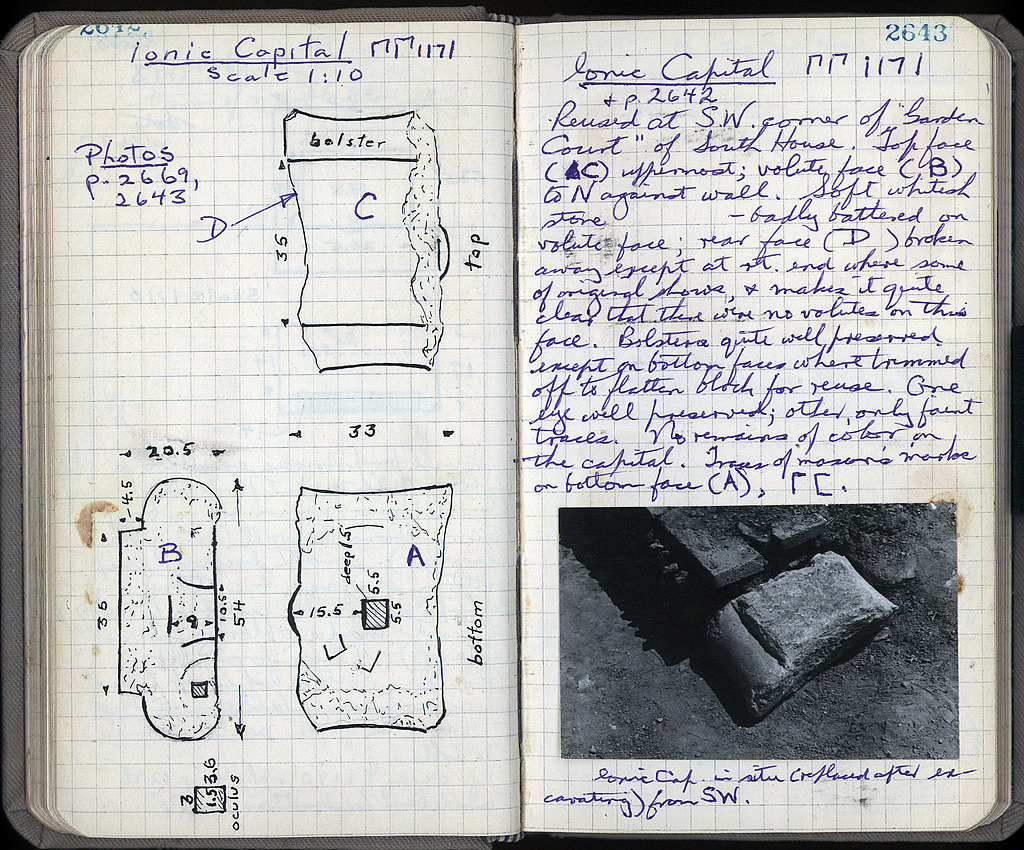 2642.
Ionic Capital ΠΠ ΙΙ71
Scale 1:10
Photos
p. 2669,
2643
bolster
C
D
35
top
33
20.5
4.5
B
35
9
10.5
54
deep 1.5
A
5.5
15.5
5.5
bottom
3
1.5
3.6
oculus
2643
Ionic Capital ΠΠ ΙΙ71
+ p. 2642
Reused at S.W. corner of "Garden
Court" of South House. Top face
(C) uppermost; volute face (B)
to N against wall. Soft whitish
stone - badly battered on
volute face; rear face (D) broken
away except at rt. end where some
of original shows, & makes it quite
clear that there were no volutes on this
face. Bolsters quite well preserved
except on bottom faces where trimmed
off to flatten block for reuse. One
eye well preserved; other, only faint
traces. No remains of color on
the capital. Traces of mason's marks
on bottom face (A), Γ [.
Ionic Cap. in situ (replaced after ex-
cavating) from SW.